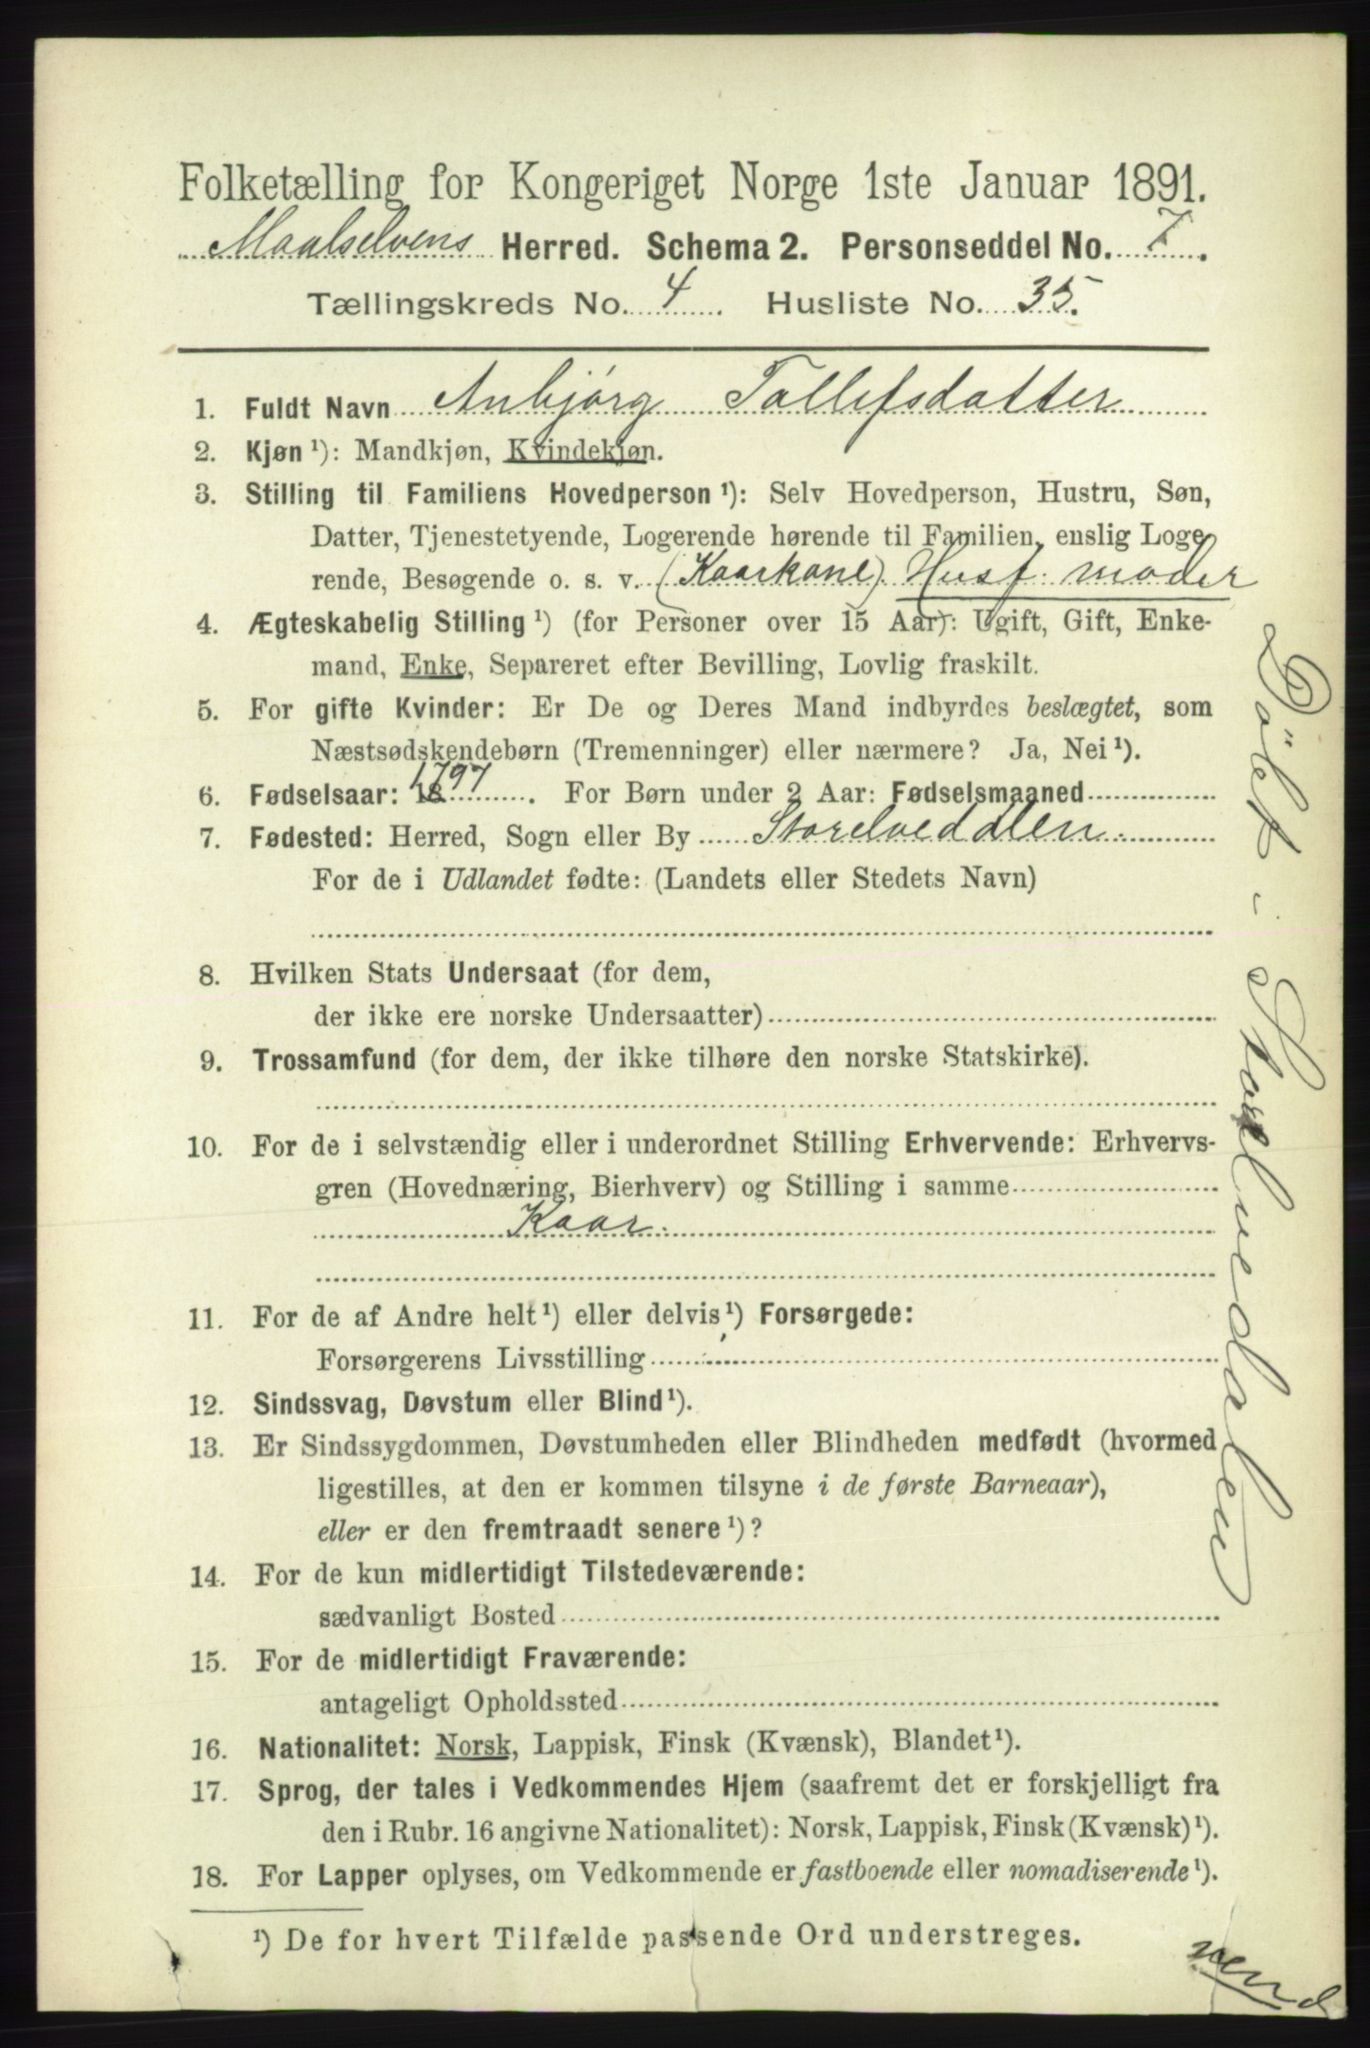 Folketælling for Kongeriget Norge 1ste Januar 1891.
Maalselvens Herred. Schema 2. Personseddel No. 7.
Tællingskreds No. 4 Husliste No. 35.
1. Fuldt Navn Anbjørg Tollefsdatter
2. Kjøn ¹): Mandkjøn, Kvindekjøn.
3. Stilling til Familiens Hovedperson ¹): Selv Hovedperson, Hustru, Søn,
Datter, Tjenestetyende, Logerende hørende til Familien, enslig Loge-
rende, Besøgende o. s. v. (Kaarkone) Husf. moder
4. Ægteskabelig Stilling ¹) (for Personer over 15 Aar): Ugift, Gift, Enke-
mand, Enke, Separeret efter Bevilling, Lovlig fraskilt.
5. For gifte Kvinder: Er De og Deres Mand indbyrdes beslægtet, som
Næstsødskendebørn (Tremenninger) eller nærmere? Ja, Nei ¹).
6. Fødselsaar: 18 1797. For Børn under 2 Aar: Fødselsmaaned
7. Fødested: Herred, Sogn eller By Storelveddlen.
For de i Udlandet fødte: (Landets eller Stedets Navn)
8. Hvilken Stats Undersaat (for dem,
der ikke ere norske Undersaatter)
9. Trossamfund (for dem, der ikke tilhøre den norske Statskirke).
10. For de i selvstændig eller i underordnet Stilling Erhvervende: Erhvervs-
gren (Hovednæring, Bierhverv) og Stilling i samme
Kaar.
11. For de af Andre helt ¹) eller delvis ¹) Forsørgede:
Forsørgerens Livsstilling
12. Sindssvag, Døvstum eller Blind ¹).
13. Er Sindssygdommen, Døvstumheden eller Blindheden medfødt (hvormed
ligestilles, at den er kommen tilsyne i de første Barneaar),
eller er den fremtraadt senere ¹)?
14. For de kun midlertidigt Tilstedeværende:
sædvanligt Bosted
15. For de midlertidigt Fraværende:
antageligt Opholdssted
16. Nationalitet: Norsk, Lappisk, Finsk (Kvænsk), Blandet ¹).
17. Sprog, der tales i Vedkommendes Hjem (saafremt det er forskjelligt fra
den i Rubr. 16 angivne Nationalitet): Norsk, Lappisk, Finsk (Kvænsk) ¹).
18. For Lapper oplyses, om Vedkommende er fastboende eller nomadiserende ¹).
¹) De for hvert Tilfælde passende Ord understreges.
vend